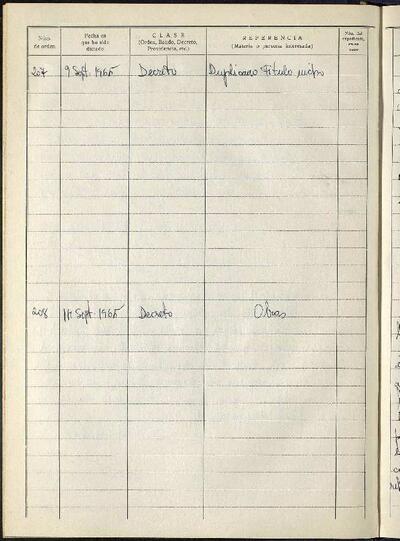 Núm. de orden
Fecha en que ha sido dictado
CLASE
(Orden, Bando, Decreto, Providencia, etc.)
REFERENCIA
(Materia o persona interesada)
Núm. del expediente,
207 9 Sept. 1965 Decreto Duplicado Título nicho
208 14 Sept. 1965 Decreto Obras